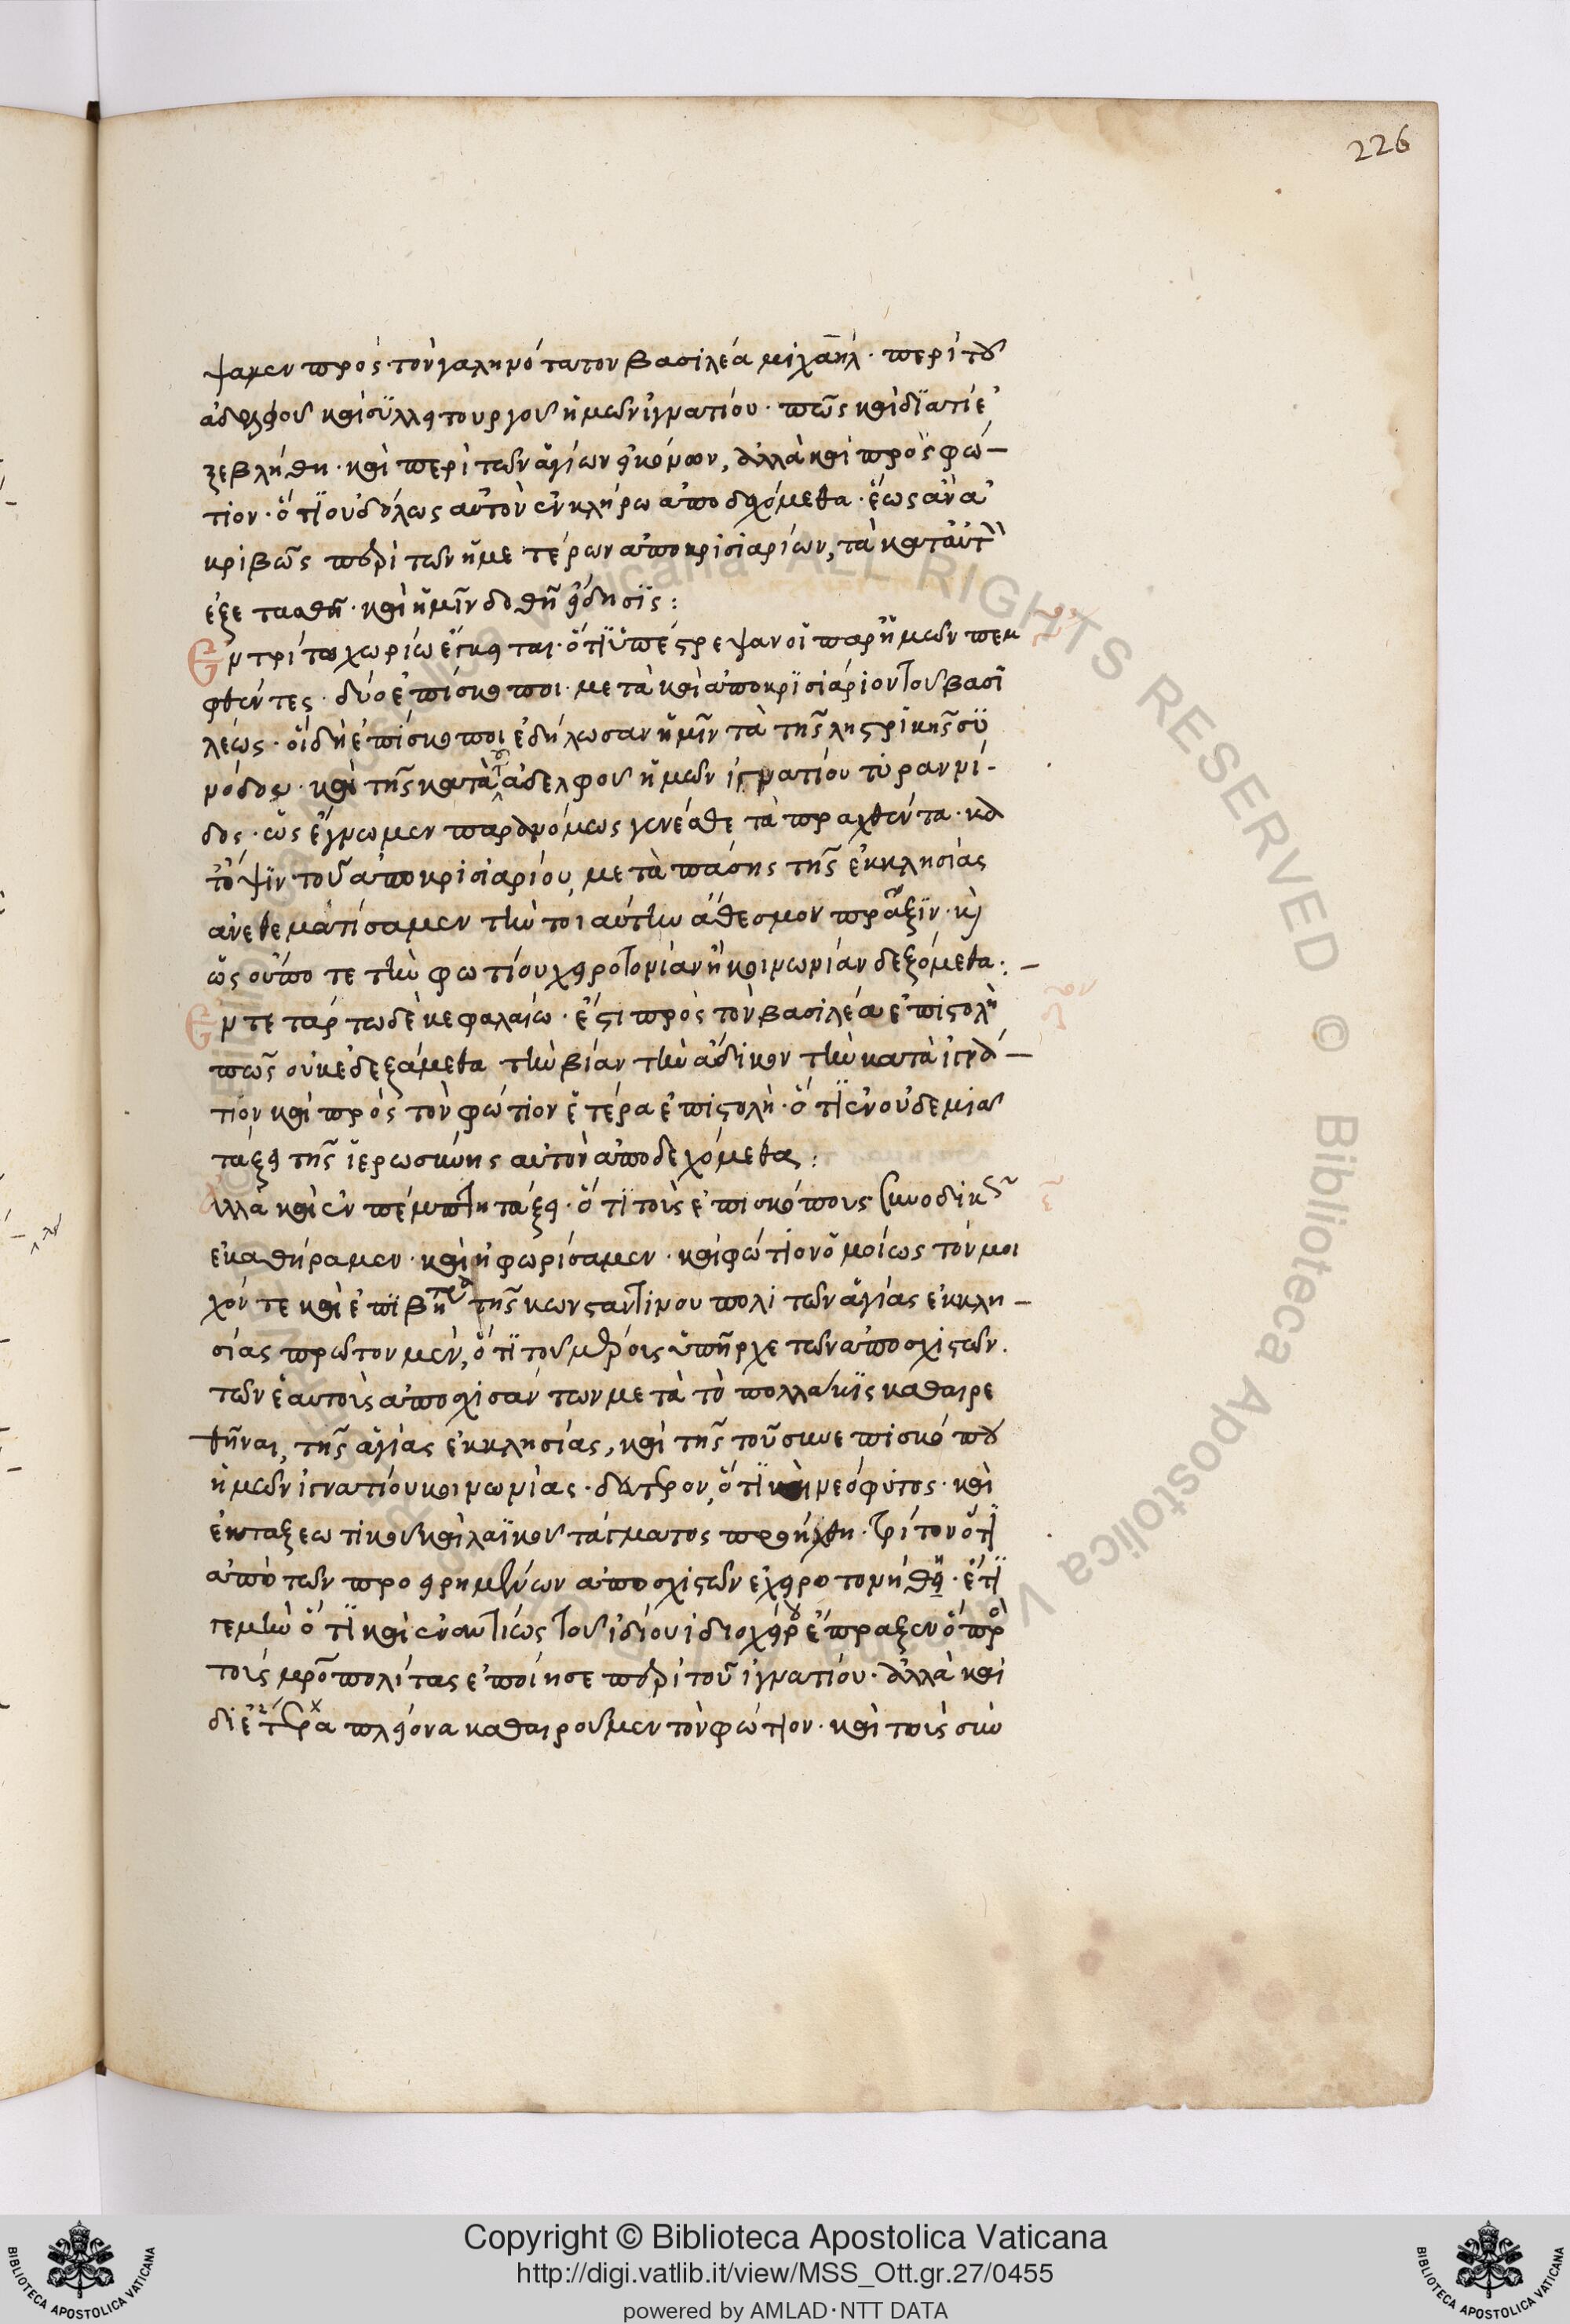 226
ψαμεν πρὸς τὸν γαληνότατον βασιλέα μιχαὴλ· περὶ τοῦ
ἀδελφοῦ καὶ συλλειτουργοῦ ἡμῶν ἰγνατίου· πῶς καὶ διατί ἐ
ξεβλήθη· καὶ περὶ τῶν ἁγίων εἰκόνων, ἀλλὰ καὶ πρὸς φώ–
τιον· ὅτι οὐδόλως αὐτὸν ἐν κλήρω ἀποδεχόμεθα· ἕως ἂν ἀ
κριβῶς περὶ τῶν ἡμετέρων ἀποκρισιαρίων, τὰ κατ αὐτὸν
ἐξετασθῆ· καὶ ἡμῖν δοθῆ εἴδησις:
Ἐν τρίτω χωρίω ἔγκειται· ὅτι ὑπέστρεψαν οἱ παρ ἡμῶν πεμ
φθέντες· δύο ἐπίσκοποι· μετὰ καὶ ἀποκρισιάριον τοῦ βασι
λέως· οἳ δὴ ἐπίσκοποι ἐδήλωσαν ἡμῖν τὰ τῆς ληστρικῆς συ
νόδου· καὶ τῆς κατὰ τοῦ ἀδελφοῦ ἡμῶν ἰγνατίου τυραννί–
δος· ὡς ἔγνωμεν παρανόμως γενέσθαι τὰ πραχθέντα· κα
τ ὄψιν τοῦ ἀποκρισιαρίου, μετὰ πάσης τῆς ἐκκλησίας
ἀνεθεματίσαμεν τὴν τοιαύτην ἄθεσμον πρᾶξιν· καὶ
ὡς οὔποτε τὴν φωτίου χειροτονίαν ἢ κοινωνίαν δεξόμεθα:–
Ἐν τετάρτω δὲ κεφαλαίω· ἔστι πρὸς τὸν βασιλέα ἐπιστολὴ
πῶς οὐκ ἐδεξάμεθα τὴν βίαν τὴν ἄδικον τὴν κατὰ ἰγνά–
τιον καὶ πρὸς τὸν φώτιον ἑτέρα ἐπιστολὴ· ὅτι ἐν οὐδεμιᾶ
τάξει τῆς ἱερωσύνης αὐτὸν ἀποδεχόμεθα:
Ἀλλὰ καὶ ἐν πέμπτη τάξει· ὅτι τοὺς ἐπισκόπους συνοδικῶς
ἐκαθήραμεν· καὶ ἠφωρίσαμεν· καὶ φώτιον ὁμοίως τὸν μοι
χόν τε καὶ ἐπιβήτορα τῆς κωνσταντινουπολιτῶν ἁγίας ἐκκλη–
σίας πρῶτον μὲν, ὅτι τοῦ μέρους ὑπῆρχε τῶν ἀποσχιστῶν·
τῶν ἑαυτοὺς ἀποσχισάντων μετὰ τὸ πολλάκις καθαιρε
θῆναι, τῆς ἁγίας ἐκκλησίας, καὶ τῆς τοῦ συνεπισκόπου
ἡμῶν ἰγνατίου κοινωνίας· δεύτερον, ὅτι καὶ νεόφυτος· καὶ
ἐκ ταξεωτικοῦ καὶ λαϊκοῦ τάγματος προήχθη· τρίτον ὅτι
ἀπὸ τῶν προειρημένων ἀποσχιστῶν ἐχειροτονήθη· ἔτι
γε μὴν ὅτι καὶ ἐναντίως τοῦ ἰδίου ἰδιοχείρου ἔπραξεν ὅπερ
τοῖς μητροπολίταις ἐποίησε περὶ τοῦ ἰγνατίου· ἀλλὰ καὶ
δι ἕτερα πλείονα καθαιροῦμεν τὸν φώτιον· καὶ τοὺς σὺν
Copyright © Biblioteca Apostolica Vaticana
http://digi.vatlib.it/view/MSS_Ott.gr.27/0455
powered by AMLAD·NTT DATA
BIBLIOTECA APOSTOLICA VATICANA
BIBLIOTECA APOSTOLICA VATICANA